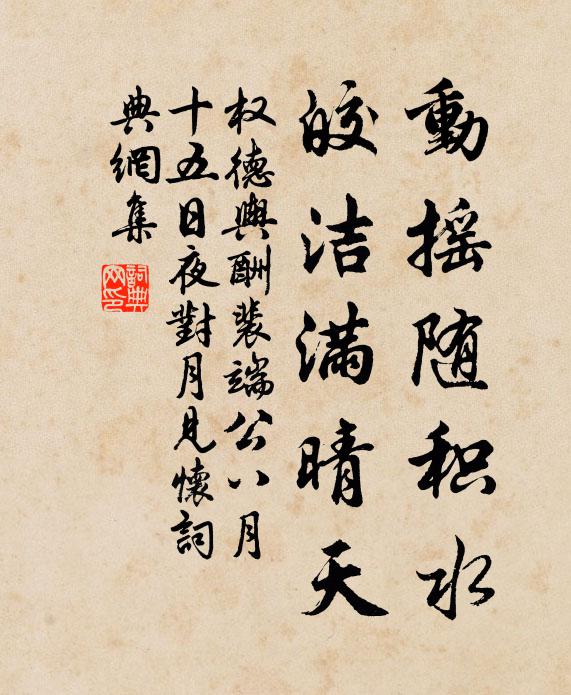 動摇随积水
皎洁满晴天
权德舆酬裴端公八月
十五日夜對月見懷詞
典網集
詞典网印